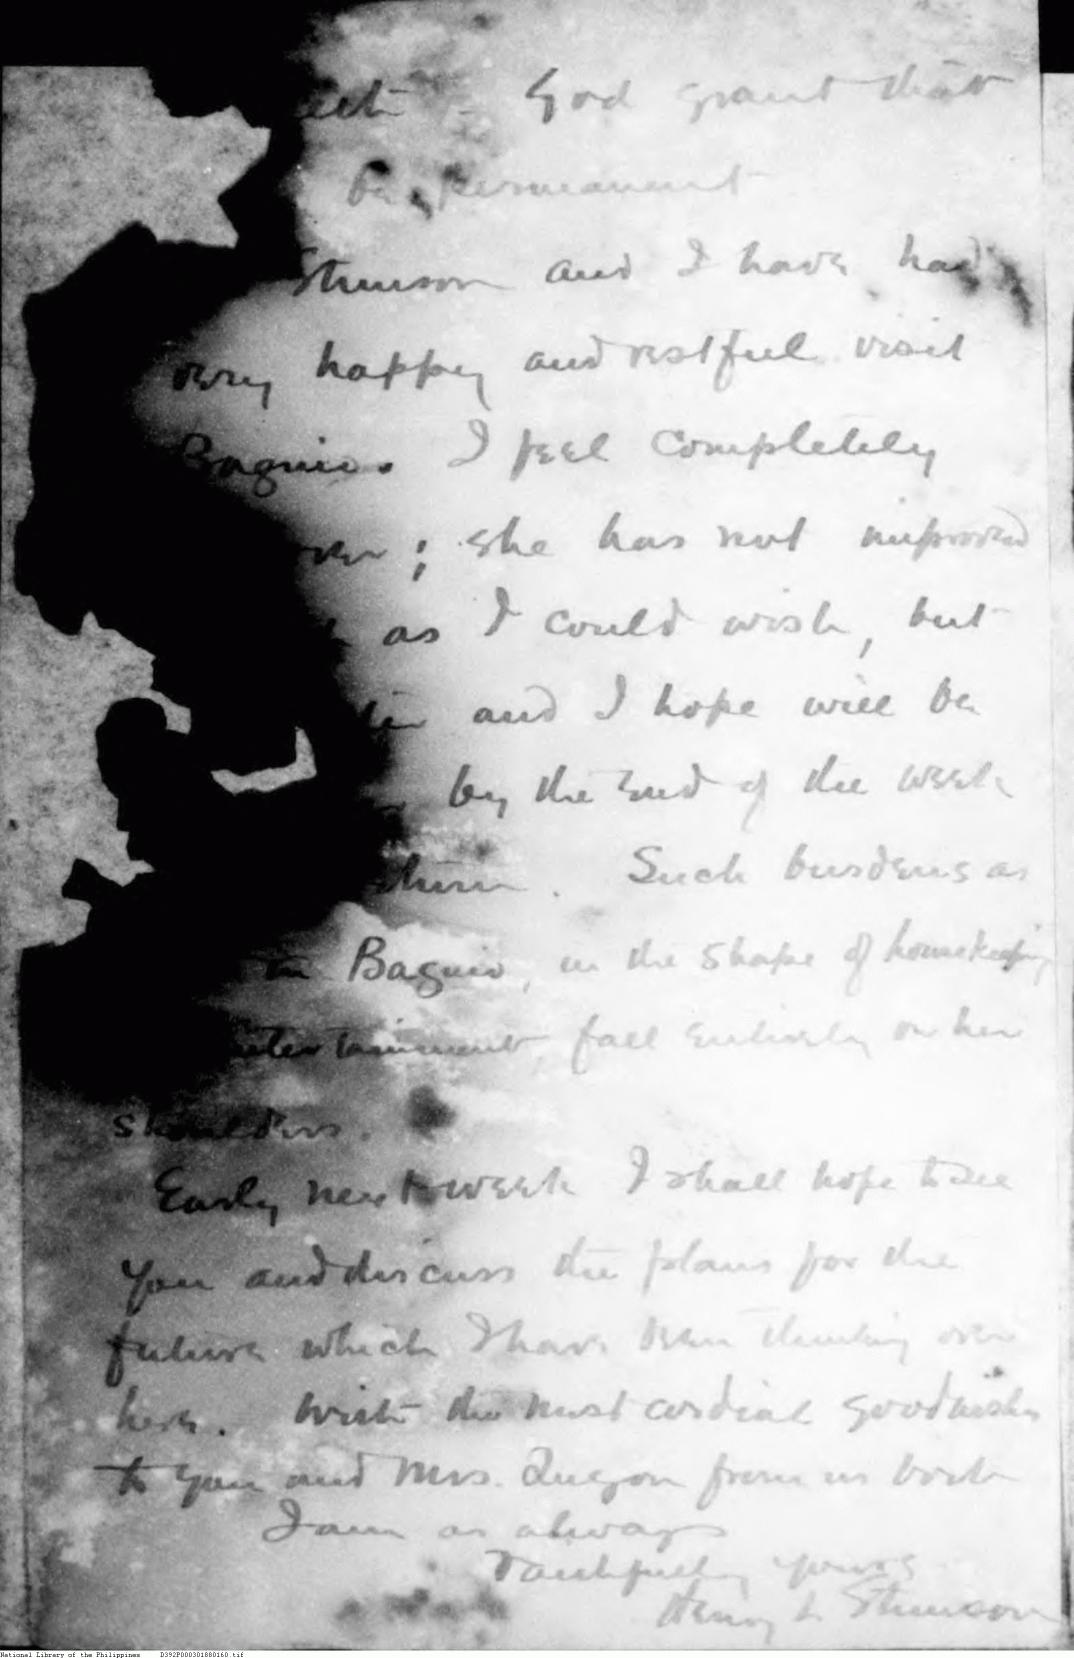 God grant that
be permanent
Stimson and I have had
very happy and restful visit
Baguio. I feel completely
; she has not improved
as I could wish, but
and I hope will be
by the end of the week
Such burdens as
Baguio, in the shape of housekeeping
entertainment, fall entirely on her
shoulders.
Early next week I shall hope to see
you and discuss the plans for the
future which I have been thinking over
here. With the most cordial good wishes
to you and Mrs. Quezon from us both
I am as always
Faithfully yours
Henry L Stimson
National Library of the Philippines D392P000301880160.tif